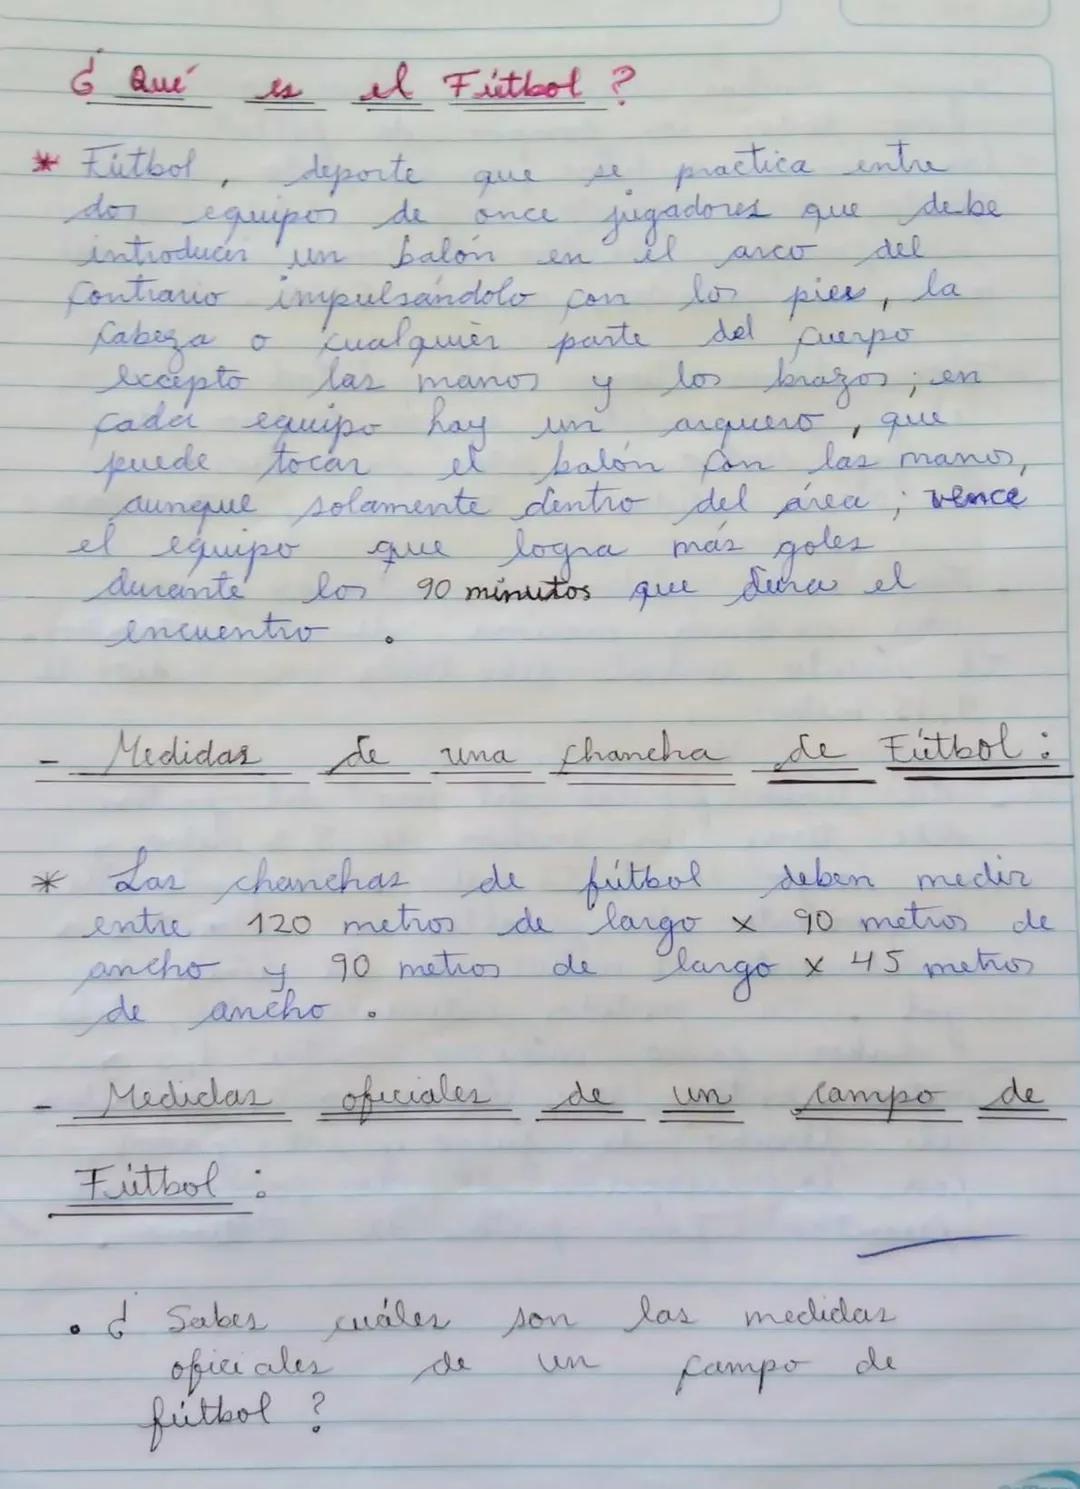 ¿Qué es el Fútbol?
* Fútbol, deporte que se practica entre
dos equipos de once jugadores que debe
introducir un balón en el arco del
contrario impulsándolo con los pies, la
cabeza o cualquier parte del cuerpo
excepto las manos y los brazos; en
cada equipo hay un arquero, que
puede tocar el balón con las manos,
aunque solamente dentro del área; vence
el equipo que logra más goles
durante los 90 minutos que dura el
encuentro.
- Medidas de una chancha de Fútbol:
* Las chanchas de fútbol deben medir
entre 120 metros de largo x 90 metros de
ancho y 90 metros de largo x 45 metros
de ancho.
- Medidas oficiales de un campo de
Fútbol:
• ¿Sabes cuáles son las medidas
oficiales de un campo de
fútbol?